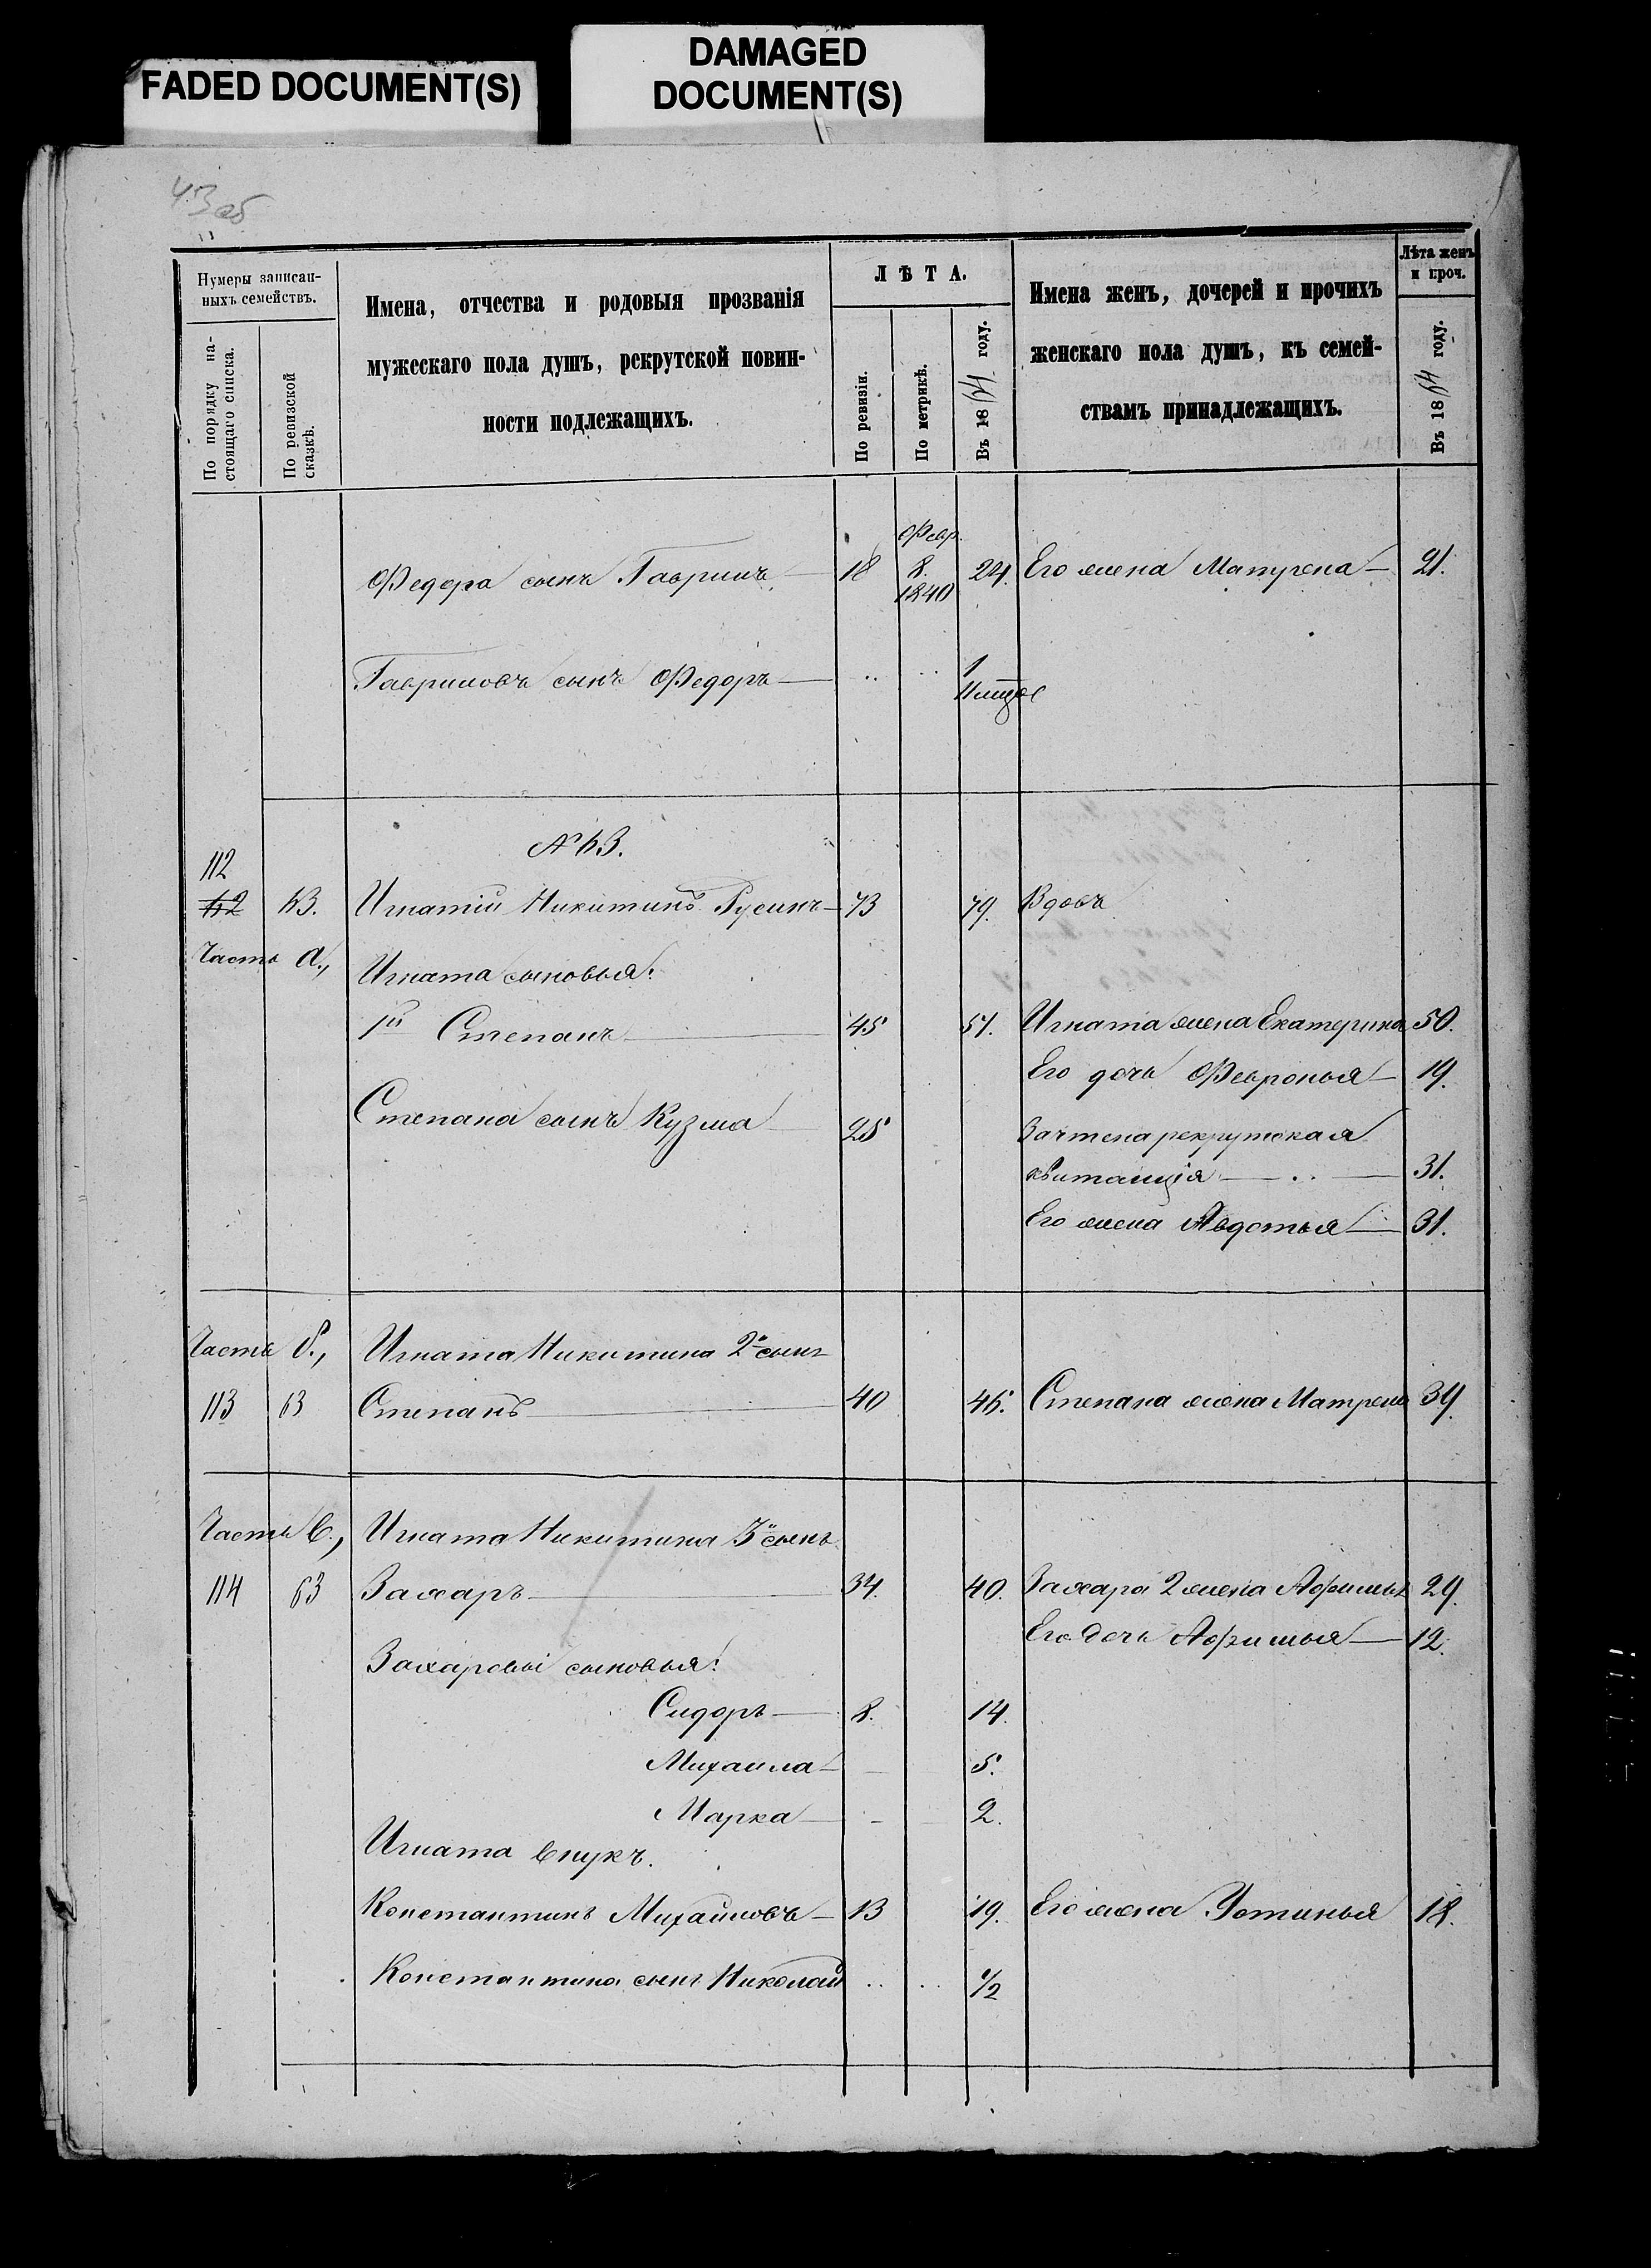 FADED DOCUMENT(S)
DAMAGED
DOCUMENT(S)
43 об
Нумеры записан-
ныхъ семействъ.
По порядку на-
стоящаго списка.
По ревизской
сказкѣ.
Имена, отчества и родовыя прозванія
мужескаго пола душъ, рекрутской повин-
ности подлежащихъ.
ЛѢТА.
По ревизіи.
По метрикѣ.
Въ 18 году.
Имена женъ, дочерей и прочихъ
женскаго пола душъ, къ семей-
ствамъ принадлежащихъ.
Лѣта женъ
и проч.
Въ 18 году.
Февр.
Федора сынъ Гаврилъ 18 8. 24. Его жена Матрена 21.
1840
Гавриловъ сынъ Федоръ 1
№ 63.
112
62 63. Игнатій Никитинъ Русинъ 73 79. Вдовъ
Часть а., Игната сыновья:
1й Степанъ 45 51. Игната жена Екатерина 50.
Его дочь Февронья 19.
Степана сынъ Кузма 25 Зачтена рекрутская
квитанція 31.
Его жена Авдотья 31.
Часть б., Игната Никитина 2й сынъ
113 63 Степанъ 40 46. Степана жена Матрена 39.
Часть в., Игната Никитина 3й сынъ
114 63 Захаръ 34. 40. Захара 2 жена Афимья 29.
Его дочь Афимья 12.
Захаровы сыновья:
Сидоръ 8. 14.
Михаила 5.
Марка 2.
Игната внукъ.
Константинъ Михайловъ 13 19. Его жена Устинья 18.
Константина сынъ Николай 1/2